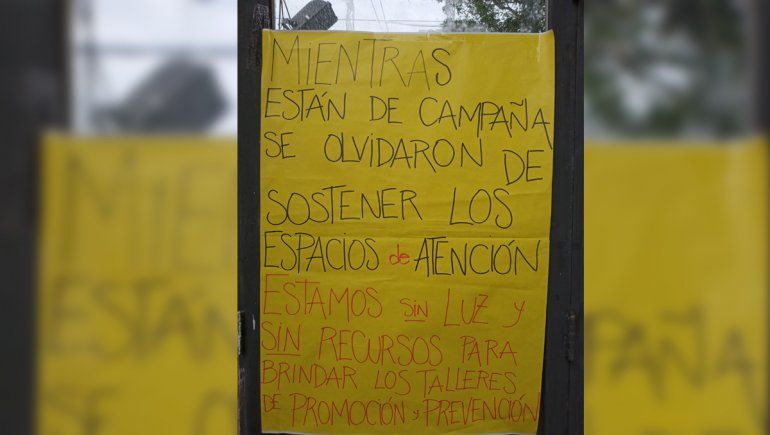 MIENTRAS
ESTÁN DE CAMPAÑA
SE OLVIDARON DE
SOSTENER LOS
ESPACIOS de ATENCIÓN
ESTAMOS SIN LUZ Y
SIN RECURSOS PARA
BRINDAR LOS TALLERES
DE PROMOCIÓN Y PREVENCIÓN